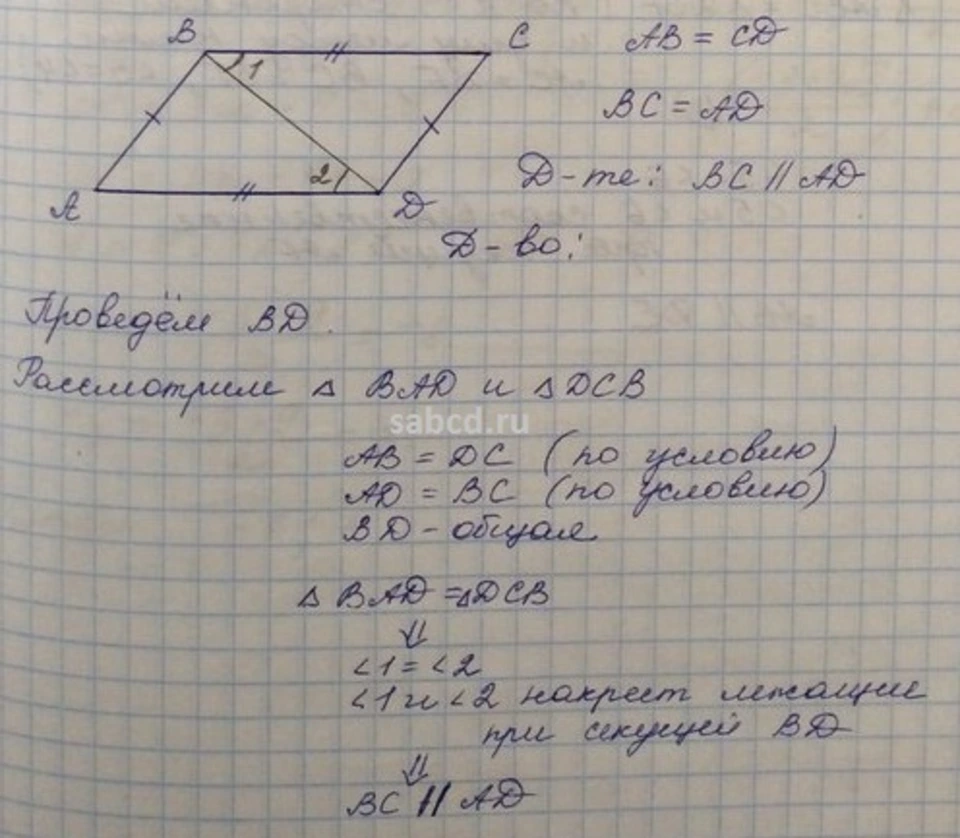 B 1 C
2
A D
AB = CD
BC = AD
Д-те: BC || AD
Д-во:
Проведём BD.
Рассмотрим △ BAD и △DCB
sabcd.ru
AB = DC (по условию)
AD = BC (по условию)
BD - общая
△ BAD = △DCB
⇓
∠1 = ∠2
∠1 и ∠2 накрест лежащие
при секущей BD
⇓
BC || AD